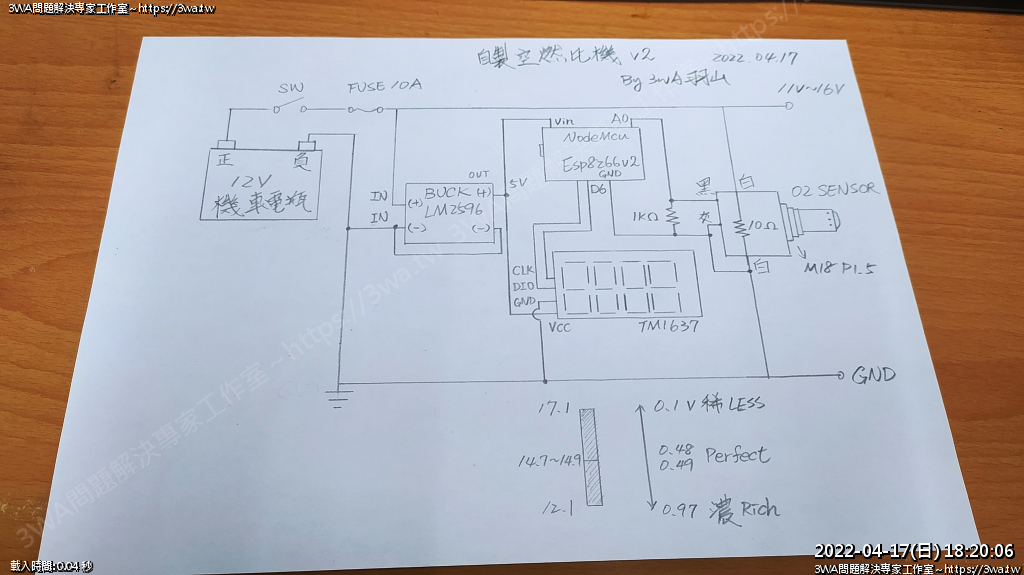 3WA問題解決專家工作室~https://3wa.tw
自製空燃比機 v2
2022.04.17
By 3WA羽山
SW
FUSE 10A
11V~16V
正
負
12V
機車電瓶
Vin
A0
NodeMcu
Esp8266v2
GND
D6
OUT
5V
IN
(+)
BUCK (+)
IN
LM2596
(-)
(-)
黑
白
O2 SENSOR
1KΩ
灰
10Ω
白
M18 P1.5
CLK
DIO
GND
VCC
TM1637
GND
17.1
0.1V 稀 LESS
14.7~14.9
0.48
0.49
Perfect
12.1
0.97 濃 Rich
3WA問題解決專家工作室~https://3wa.tw
載入時間:0.04 秒
2022-04-17(日) 18:20:06
3WA問題解決專家工作室~https://3wa.tw